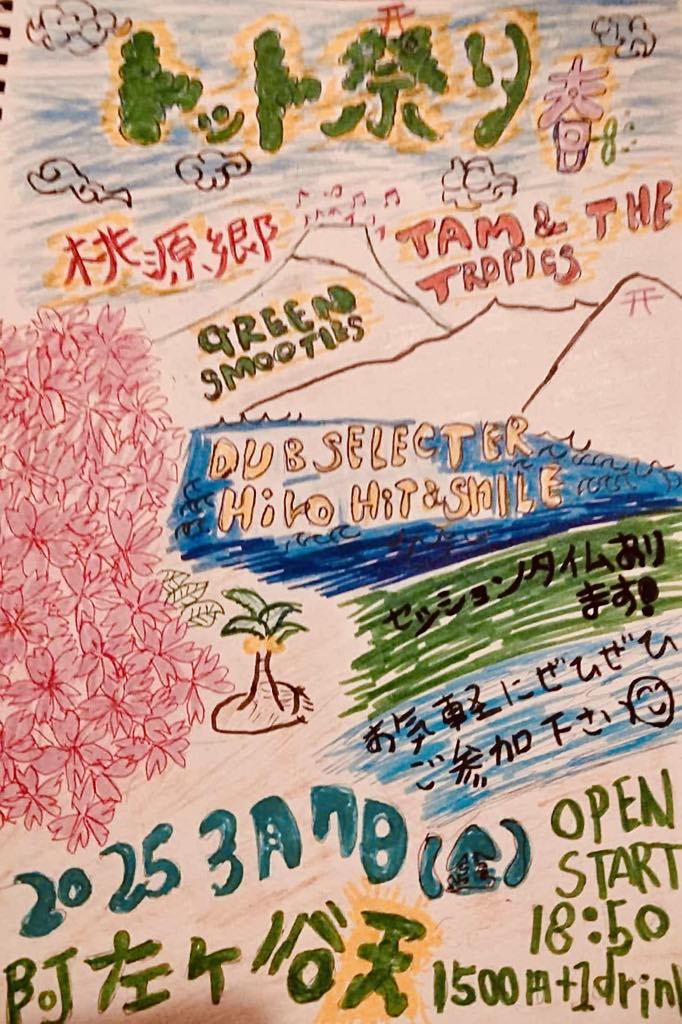 トット祭り 春
桃源郷
TAM & THE
TROPICS
GREEN
SMOOTIES
DUB SELECTER
HiLo HiT & SMILE
セッションタイムあり
ます!
お気軽にぜひぜひ
ご参加下さい
2025 3月7日(金)
OPEN
START
18:50
阿左ヶ谷天
1500円+1drink